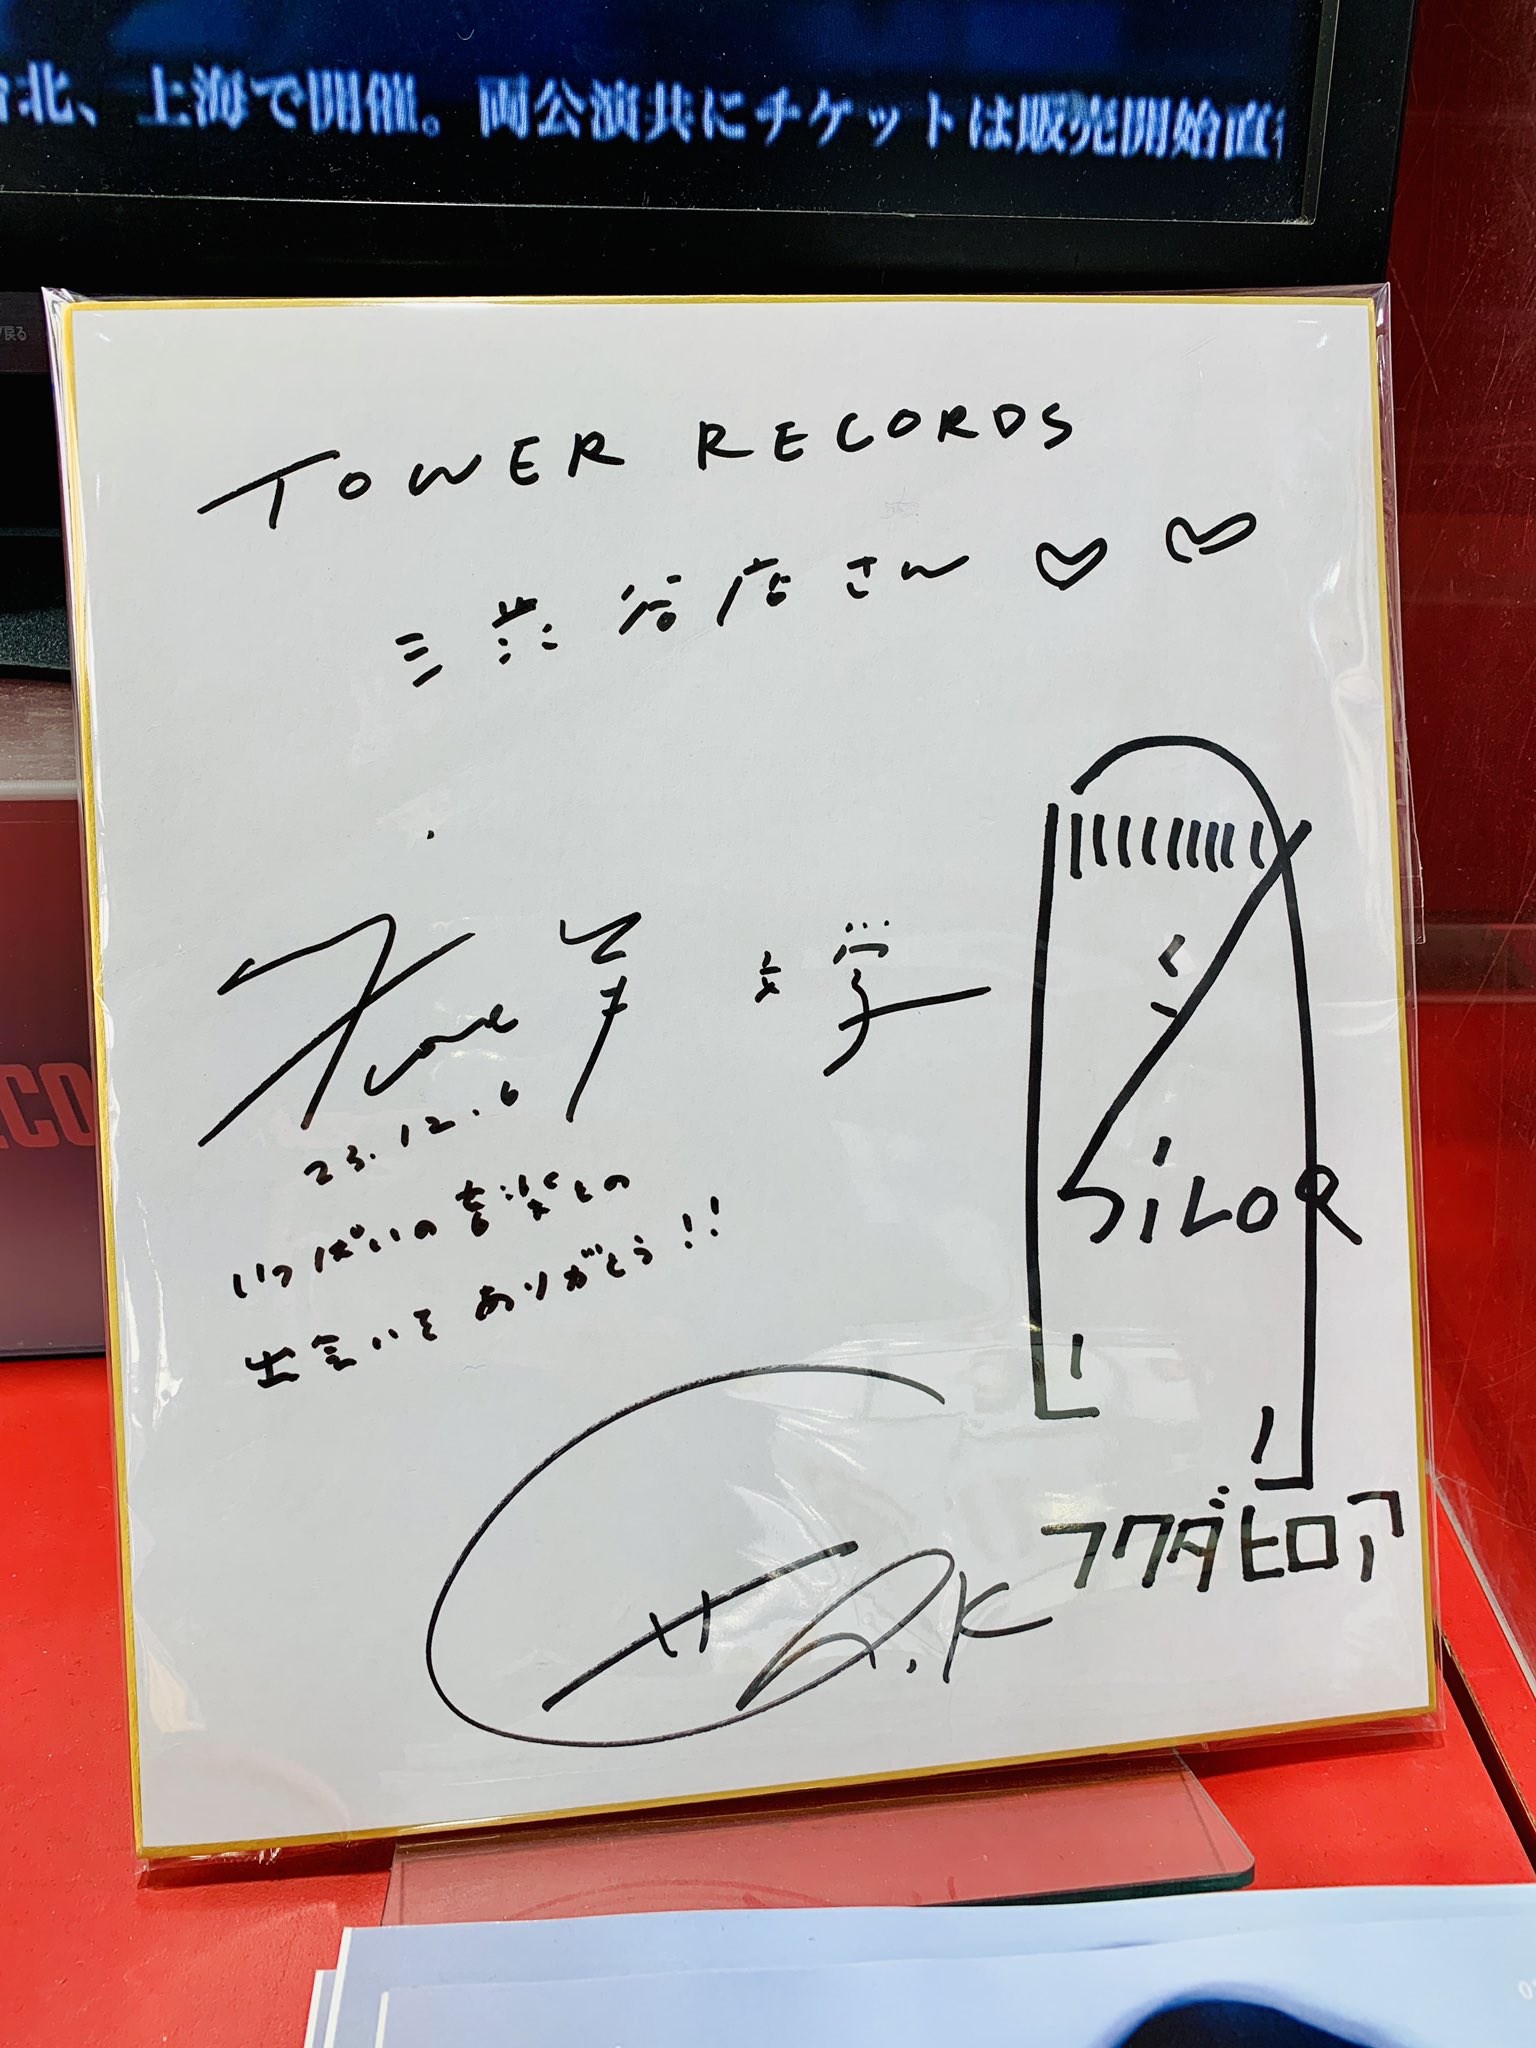 北、上海で開催。両公演共にチケットは販売開始直
戻る
TOWER RECORDS
渋谷店さん ♡ ♡
文学
23.12.6
いっぱいの音楽との
出会いをありがとう!!
SiLOR
フクダヒロア
R.K